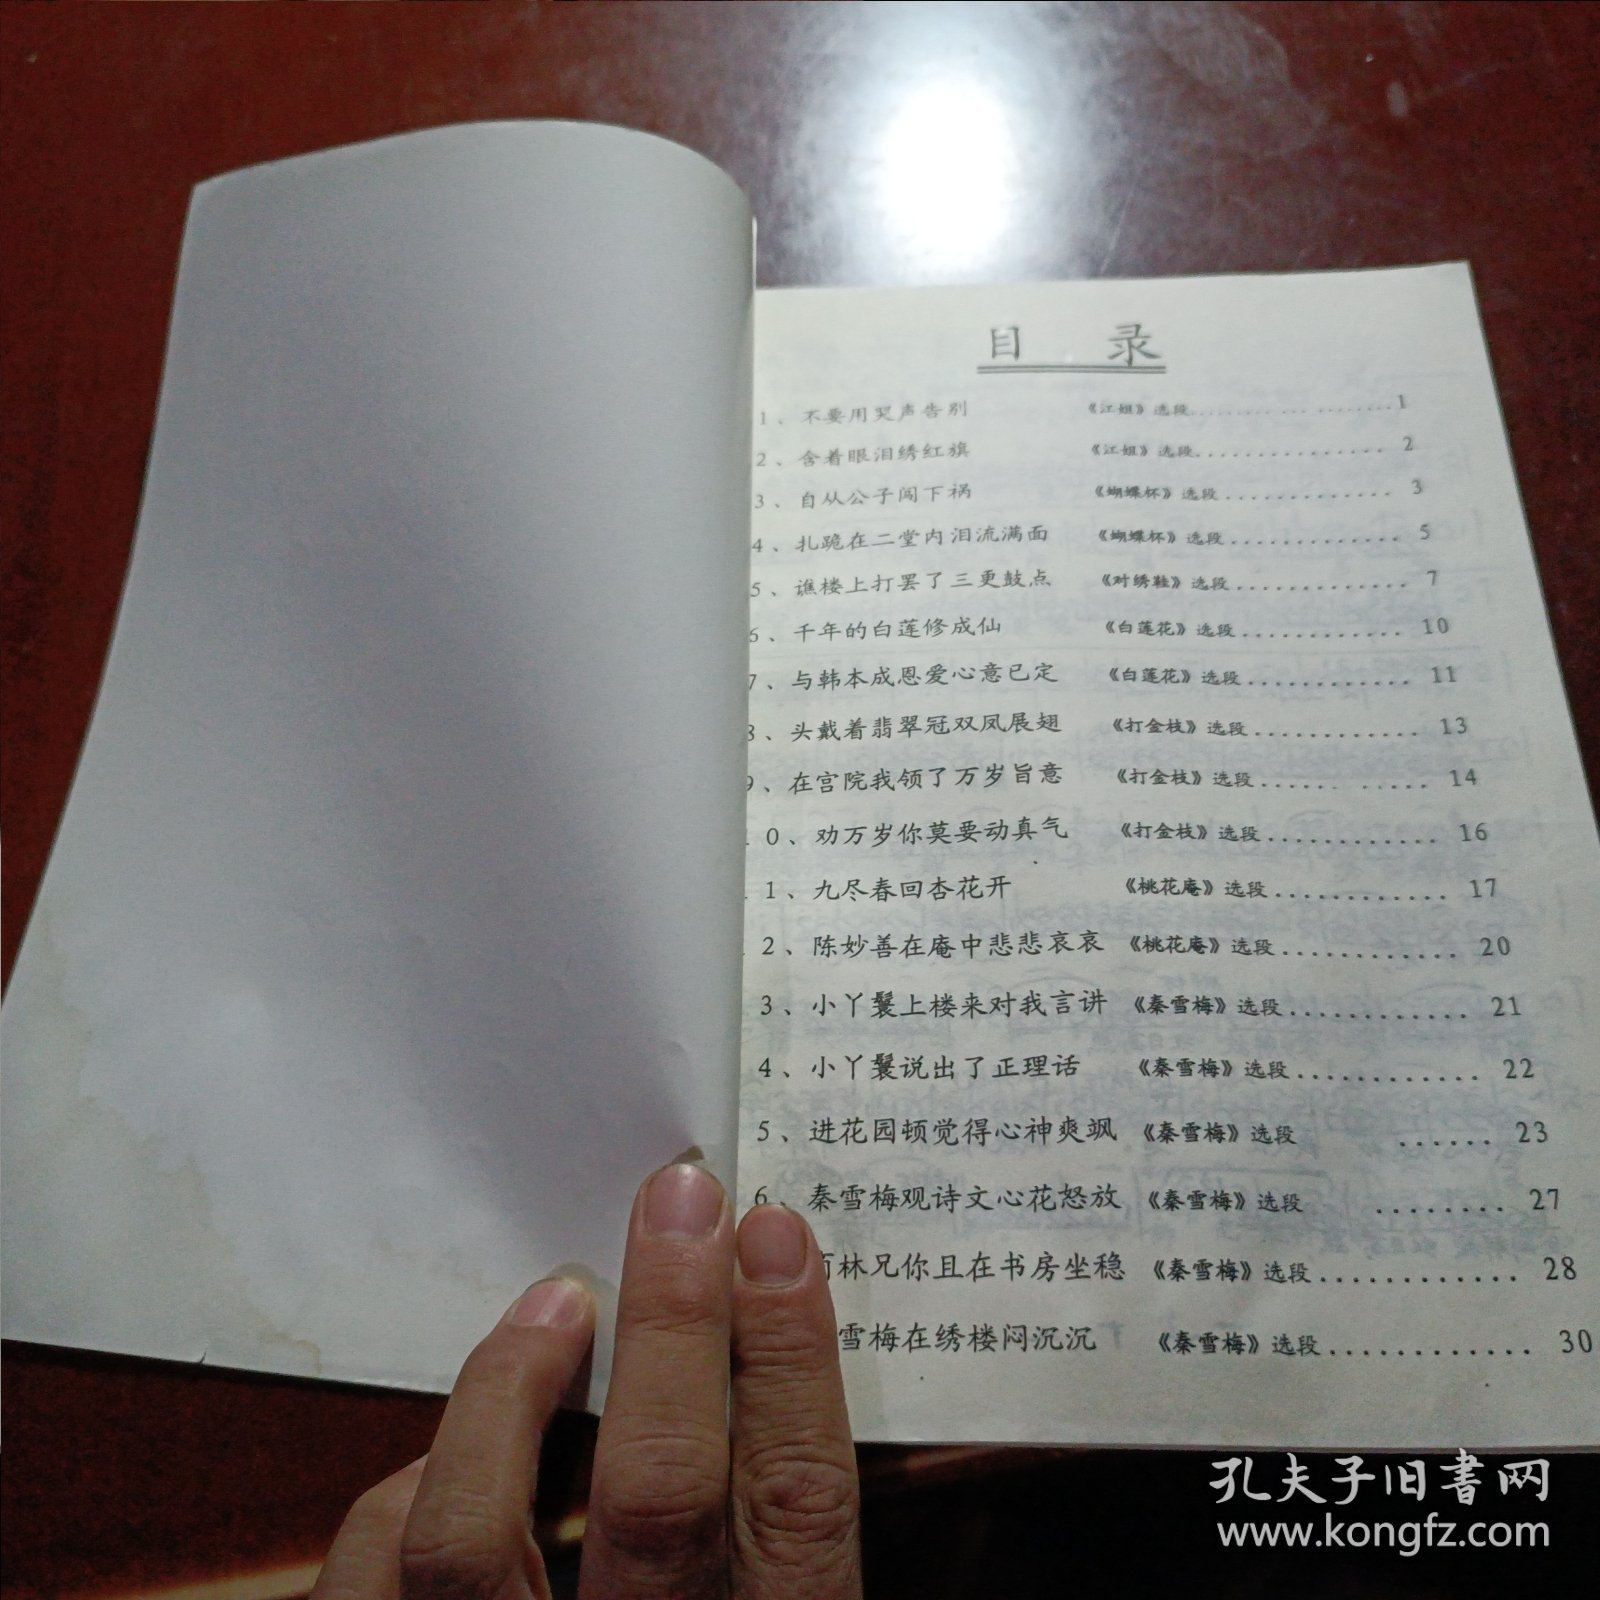 目 录
1、不要用哭声告别 《江姐》选段.................1
2、含着眼泪绣红旗 《江姐》选段............... 2
3、自从公子闯下祸 《蝴蝶杯》选段............. 3
4、扎跪在二堂内泪流满面 《蝴蝶杯》选段............. 5
5、谯楼上打罢了三更鼓点 《对绣鞋》选段............. 7
6、千年的白莲修成仙 《白莲花》选段............ 10
7、与韩本成恩爱心意已定 《白莲花》选段............ 11
8、头戴着翡翠冠双凤展翅 《打金枝》选段............ 13
9、在宫院我领了万岁旨意 《打金枝》选段...... ..... 14
10、劝万岁你莫要动真气 《打金枝》选段............ 16
11、九尽春回杏花开 《桃花庵》选段............ 17
12、陈妙善在庵中悲悲哀哀 《桃花庵》选段............ 20
3、小丫鬟上楼来对我言讲 《秦雪梅》选段............ 21
4、小丫鬟说出了正理话 《秦雪梅》选段............ 22
5、进花园顿觉得心神爽飒 《秦雪梅》选段 ...... 23
6、秦雪梅观诗文心花怒放 《秦雪梅》选段 ........ 27
林兄你且在书房坐稳 《秦雪梅》选段............. 28
雪梅在绣楼闷沉沉 《秦雪梅》选段............. 30
孔夫子旧书网
www.kongfz.com